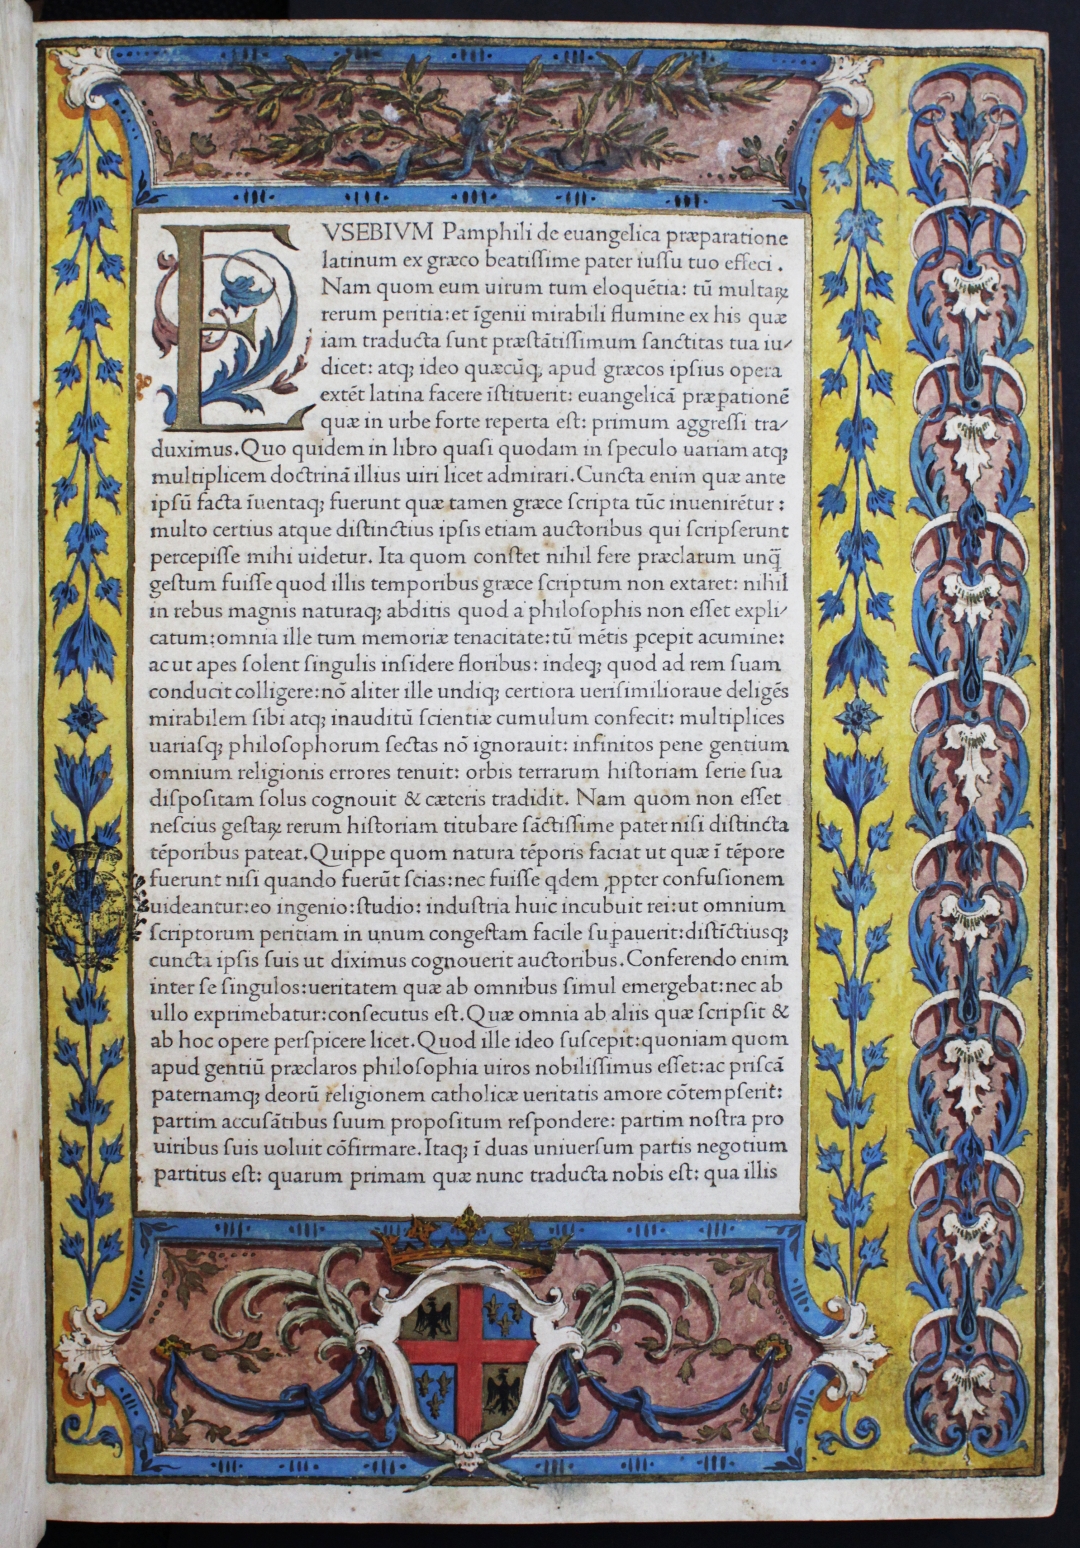 EVSEBIVM Pamphili de euangelica præparatione
latinum ex græco beatiſſime pater iuſſu tuo effeci .
Nam quom eum uirum tum eloquētia: tū multaꝝ
rerum peritia: et īgenii mirabili flumine ex his quæ
iam traducta ſunt præſtātiſſimum ſanctitas tua iu⸗
dicet: atqꝫ ideo quæcūqꝫ apud græcos ipſius opera
extēt latina facere iſtituerit: euangelicā præꝑationē
quæ in urbe forte reperta eſt: primum aggreſſi tra⸗
duximus. Quo quidem in libro quaſi quodam in ſpeculo uariam atqꝫ
multiplicem doctrinā illius uiri licet admirari. Cuncta enim quæ ante
ipſū facta īuentaqꝫ fuerunt quæ tamen græce ſcripta tūc inuenirētur :
multo certius atque diſtinctius ipſis etiam auctoribus qui ſcripſerunt
percepiſſe mihi uidetur. Ita quom conſtet nihil fere præclarum unq̄
geſtum fuiſſe quod illis temporibus græce ſcriptum non extaret: nihil
in rebus magnis naturaqꝫ abditis quod a philoſophis non eſſet expli⸗
catum: omnia ille tum memoriæ tenacitate: tū mētis ꝑcepit acumine:
ac ut apes ſolent ſingulis inſidere floribus: indeqꝫ quod ad rem ſuam
conducit colligere: nō aliter ille undiqꝫ certiora ueriſimilioraue deligēs
mirabilem ſibi atqꝫ inauditū ſcientiæ cumulum confecit: multiplices
uariaſqꝫ philoſophorum ſectas nō ignorauit: infinitos pene gentium
omnium religionis errores tenuit: orbis terrarum hiſtoriam ſerie ſua
diſpoſitam ſolus cognouit & cæteris tradidit. Nam quom non eſſet
neſcius geſtaꝝ rerum hiſtoriam titubare ſāctiſſime pater niſi diſtincta
tēporibus pateat. Quippe quom natura tēporis faciat ut quæ ī tēpore
fuerunt niſi quando fuerūt ſcias: nec fuiſſe qdem ꝓpter confuſionem
uideantur: eo ingenio: ſtudio: induſtria huic incubuit rei: ut omnium
ſcriptorum peritiam in unum congeſtam facile ſuꝑauerit: diſtīctiuſqꝫ
cuncta ipſis ſuis ut diximus cognouerit auctoribus. Conferendo enim
inter ſe ſingulos: ueritatem quæ ab omnibus ſimul emergebat: nec ab
ullo exprimebatur: conſecutus eſt. Quæ omnia ab aliis quæ ſcripſit &
ab hoc opere perſpicere licet. Quod ille ideo ſuſcepit: quoniam quom
apud gentiū præclaros philoſophia uiros nobiliſſimus eſſet: ac priſcā
paternamqꝫ deorū religionem catholicæ ueritatis amore cōtempſerit:
partim accuſātibus ſuum propoſitum reſpondere: partim noſtra pro
uiribus ſuis uoluit cōfirmare. Itaqꝫ ī duas uniuerſum partis negotium
partitus eſt: quarum primam quæ nunc traducta nobis eſt: qua illis